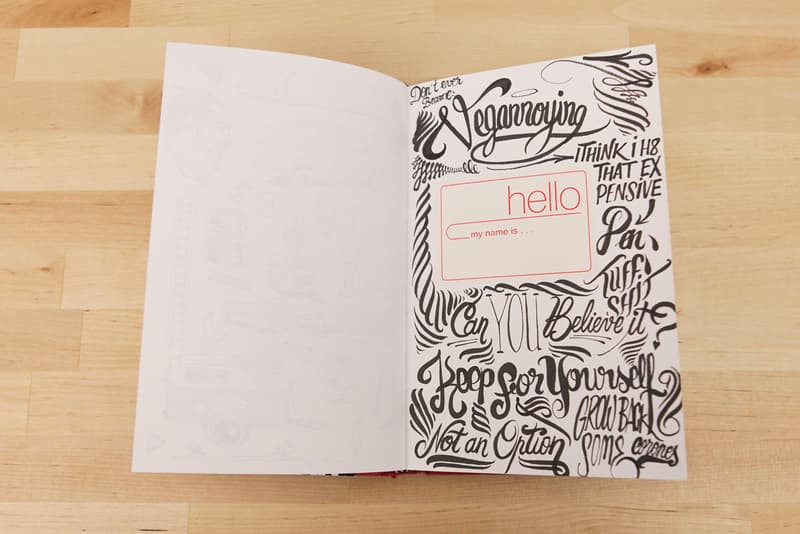 Don't ever
Become:
Vegannoying
iTHiNK i H8
THAT EX
PENSIVE
Pen
hello
my name is . . .
TUFF.
Can YOU Believe it?
Keep for Yourself
GROW BACK
Not an Option
SOMS